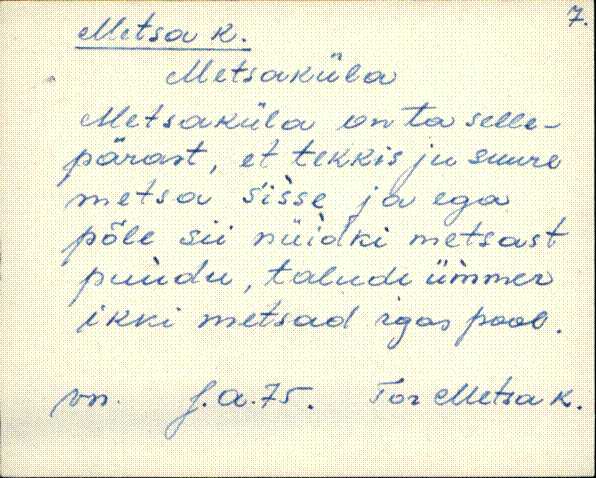 7.
Metsa k.
Metsaküla
Metsaküla on ta selle-
pärast, et tekkis ju suure
metsa s'isse ja ega
põle sii nüidki metsast
puudu, talude ümmer
ikki metsad igas pool.
vn. J.A.75. Tor Metsa k.